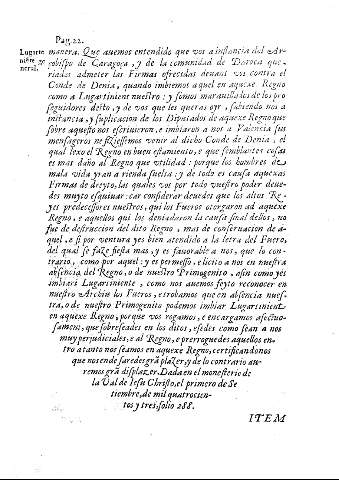 Pag. 22.
Lugarte
niēte ge
neral.
manera. Que auemos entendido que vos a instancia del Ar-
çobispo de Caragoça, y de la comunidad de Daroca que-
riades admeter las Firmas ofrecidas deuant vos contra el
Conde de Denia, quando imbiemos aquel en aquexe Regno
como a Lugartinient nuestro: y somos marauillados de los pro
seguidores desto, y de vos que les queras oyr, sabiendo nos a
instancia, y suplicacion de los Diputados de aquexe Regno que
sobre aquesto nos escriuieron, e imbiaron a nos a Valencia sus
mensageros ne fiziessemos venir al dicho Conde de Denia, el
qual lexo el Regno en buen estamiento, e que semblantes cosas
es mas daño al Regno que vtilidad: porque los hombres de
mala vida yran a rienda suelta: y de todo es causa aquexas
Firmas de dreyto, las quales vos por todo vuestro poder deue-
des muyto esquiuar: car considerar deuedes que los altos Re-
yes predecessores nuestros, qui los Fueros otorgaron ad aquexe
Regno, e aquellos qui los demandaron la causa final dellos, no
fue de destruccion del dito Regno, mas de conseruacion de a-
quel. e si por ventura yes bien atendido a la letra del Fuero,
del qual se faze fiesta mas, y es fauorable a nos, que lo con-
trario, como por aquel: y es permesso, e licito a nos en nuestra
absencia del Regno, o de nuestro Primogenito, asin como yes
imbiari Lugartiniente, como nos auemos feyto reconocer en
nuestro Archiu los Fueros, e trobamos que en absencia nues-
tra, o de nuestro Primogenito podemos imbiar Lugartinient
en aquexe Regno, porque vos rogamos, e encargamos afectuo-
sament, que sobreseades en los ditos, esedes como sean a nos
muy perjudiciales, e al Regno, e prerroguedes aquellos en-
tro a tanto nos seamos en aquexe Regno, certificandonos
que nos ende faredes grā plazer, y de lo contrario au-
remos grā displazer. Dada en el monesterio de
la Val de Iesu Christo, el primero de Se
tiembre, de mil quatrocien-
tos y tres. folio 288.
ITEM